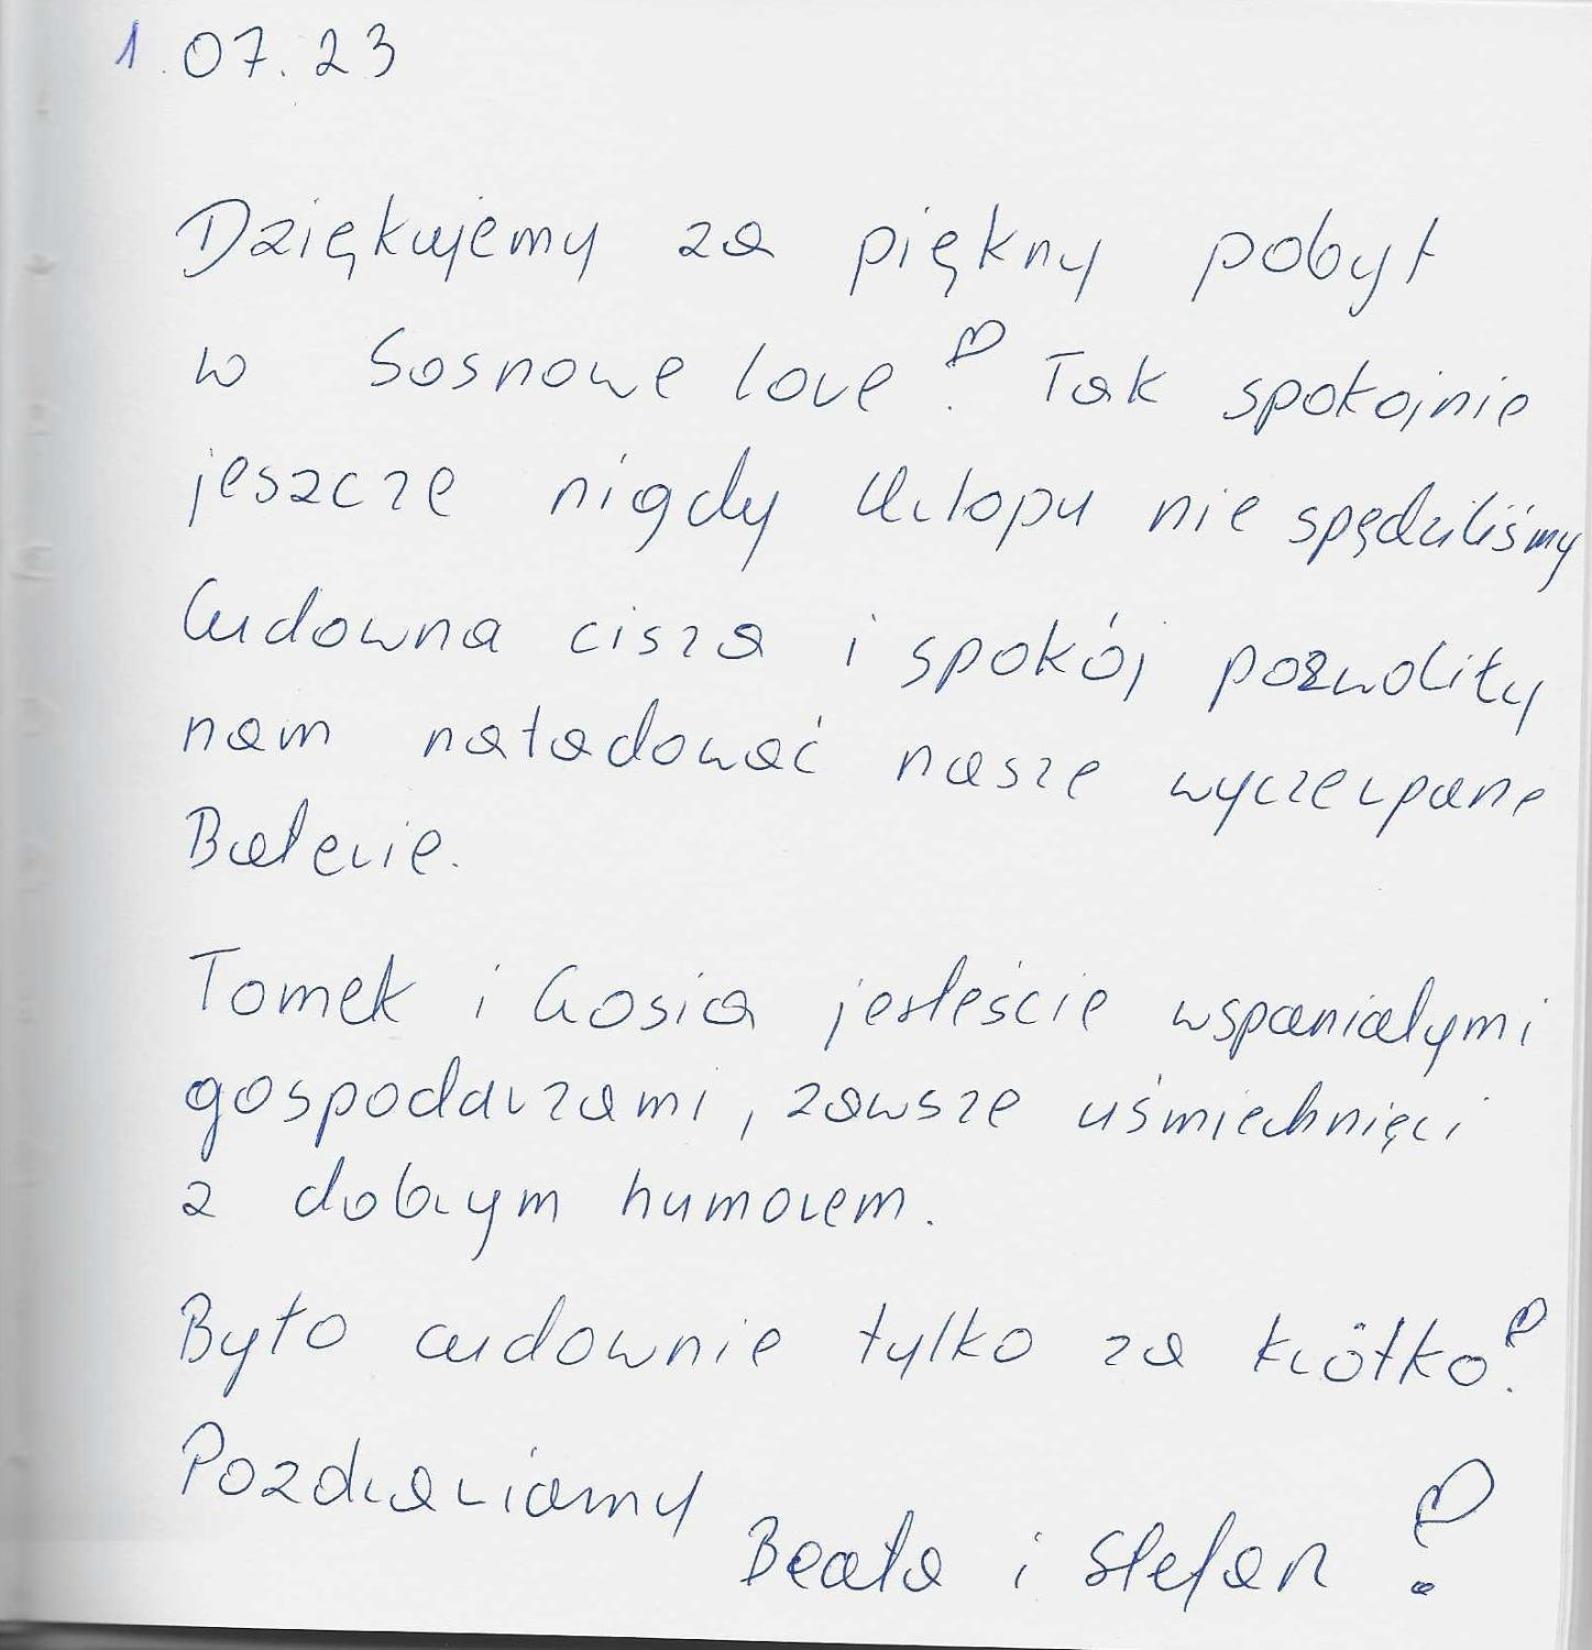 1.07.23
Dziękujemy za piękny pobyt
w Sosnowe love♡. Tak spokojnie
jeszcze nigdy Urlopu nie spędziliśmy
Cudowna cisza i spokój pozwoliły
nam naładować nasze wyczerpane
Baterie.
Tomek i Gosia jesteście wspaniałymi
gospodarzami, zawsze uśmiechnięci
z dobrym humorem.
Było cudownie tylko za krótko♡.
Pozdrawiamy
Beata i Stefan ♡.